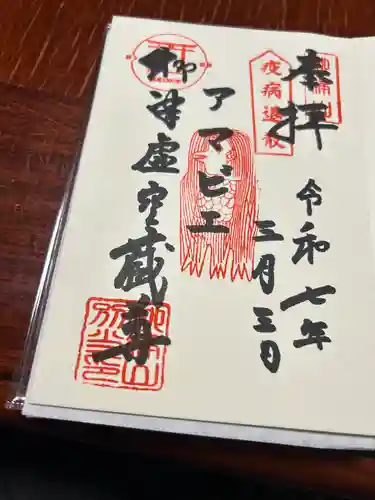 奉拝
疫病退散
令和七年
三月三日
アマビエ
柳津虚空蔵尊